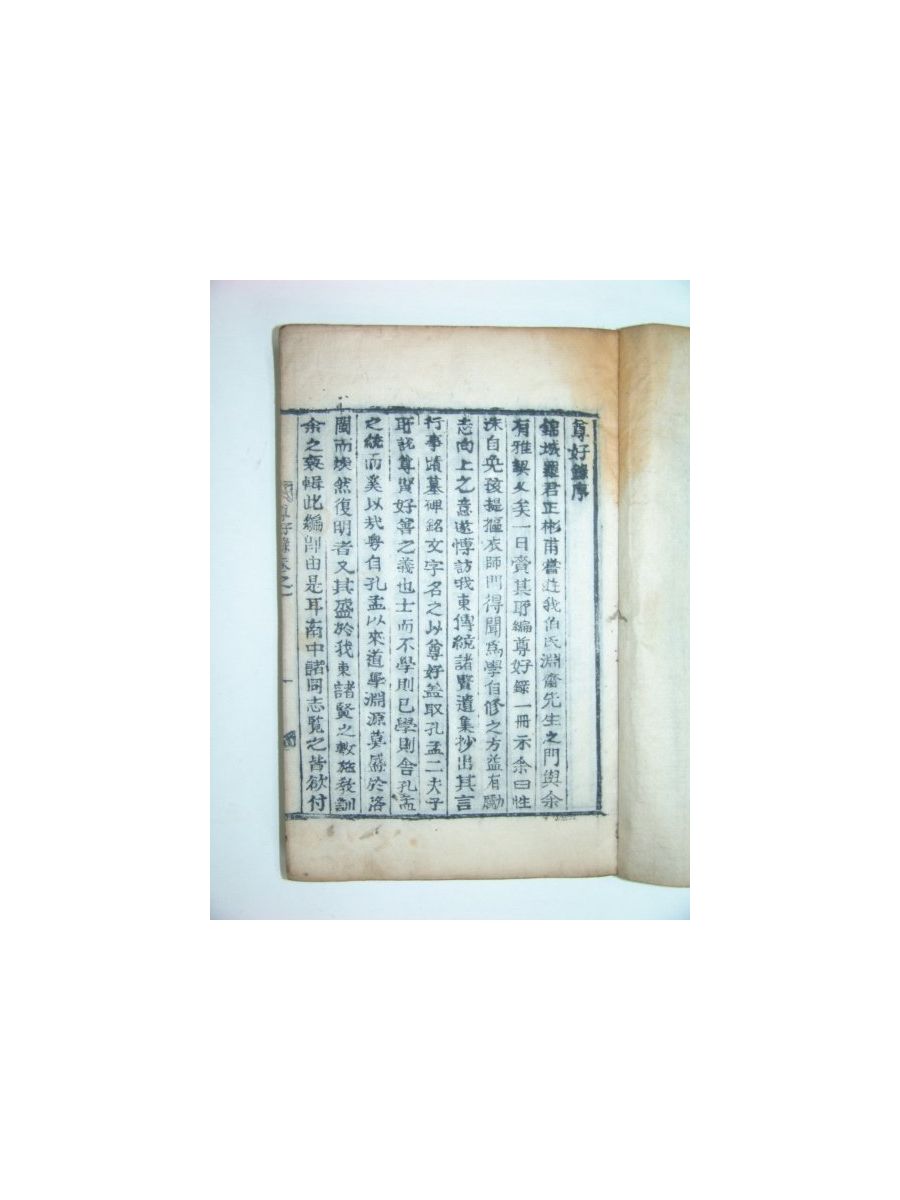 尊好錄序
錦城羅君正彬甫嘗遊我伯氏淵齋先生之門與余
有雅契久矣一日賫其所編尊好錄一冊示余曰性
洙自免孩提摳衣師門得聞爲學自修之方益有勵
志向上之意遂博訪我東傳統諸賢遺集抄出其言
行事蹟墓碑銘文字名之以尊好盖取孔孟二夫子
所託尊賢好善之義也士而不學則已學則舍孔孟
之統而奚以哉粤自孔孟以來道學淵源莫盛於洛
閩而煥然復明者又其盛於我東諸賢之敷施敎訓
余之裒輯此編卽由是耳南中諸同志覽之皆欲付
尊好錄卷之一
一